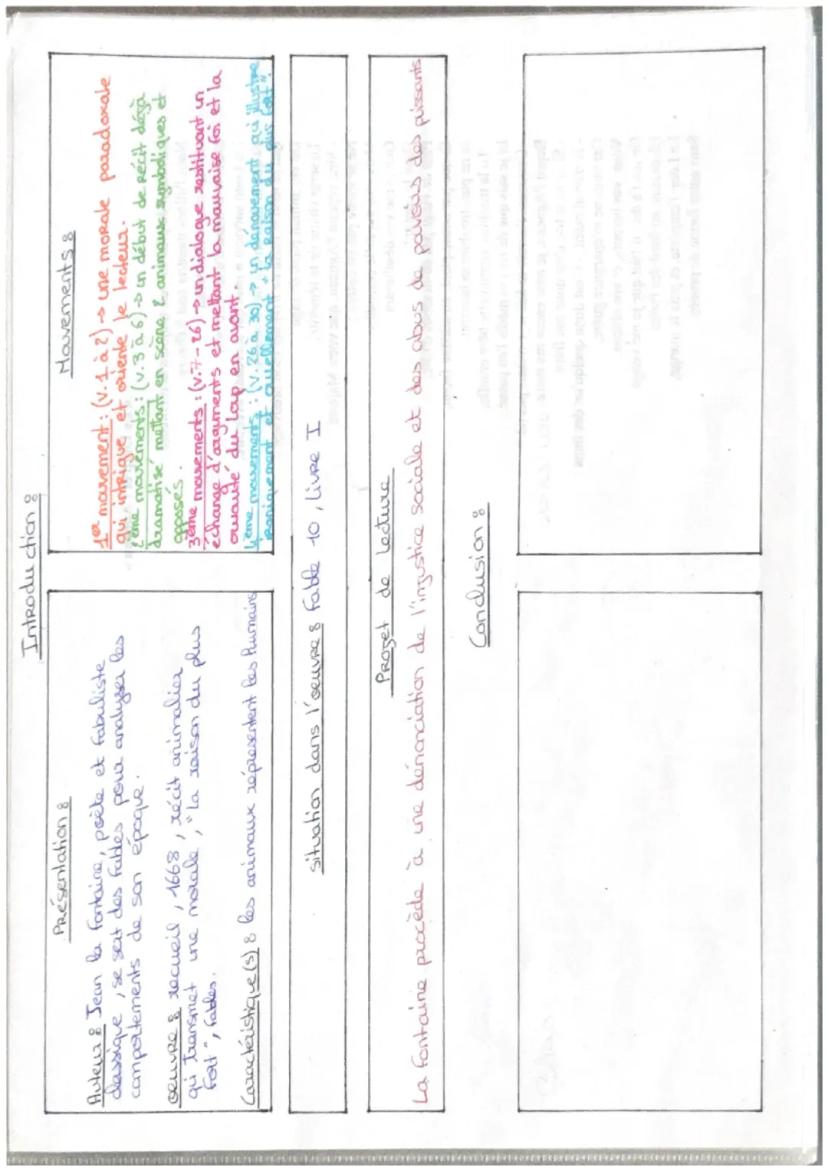 Introduction :
Présentation :
Auteur : Jean la Fontaine, poète et fabuliste
classique, se sert des fables pour analyser les
comportements de son époque.
oeuvre : recueil, 1668, récit animalier
qui transmet une morale, "la raison du plus
fort", fables.
Caractéristique(s) : les animaux représentent les humains
Mouvements :
1er mouvement : (v. 1 à 2) → une morale paradoxale
qui intrigue et oriente le lecteur.
2ème mouvements : (v. 3 à 6) → un début de récit déjà
dramatisé mettant en scène 2 animaux symboliques et
opposés.
3ème mouvements : (v.7-26) → un dialogue restituant un
échange d'arguments et mettant la mauvaise foi et la
cruauté du loup en avant.
4ème mouvements : (v. 26 à 30) → un dénouement qui illustre
ironiquement et cruellement "la raison du plus fort".
situation dans l'oeuvre : Fable 10, Livre I
Projet de lecture
La Fontaine procède à une dénonciation de l'injustice sociale et des abus de pouvoirs des puissants
Conclusion :